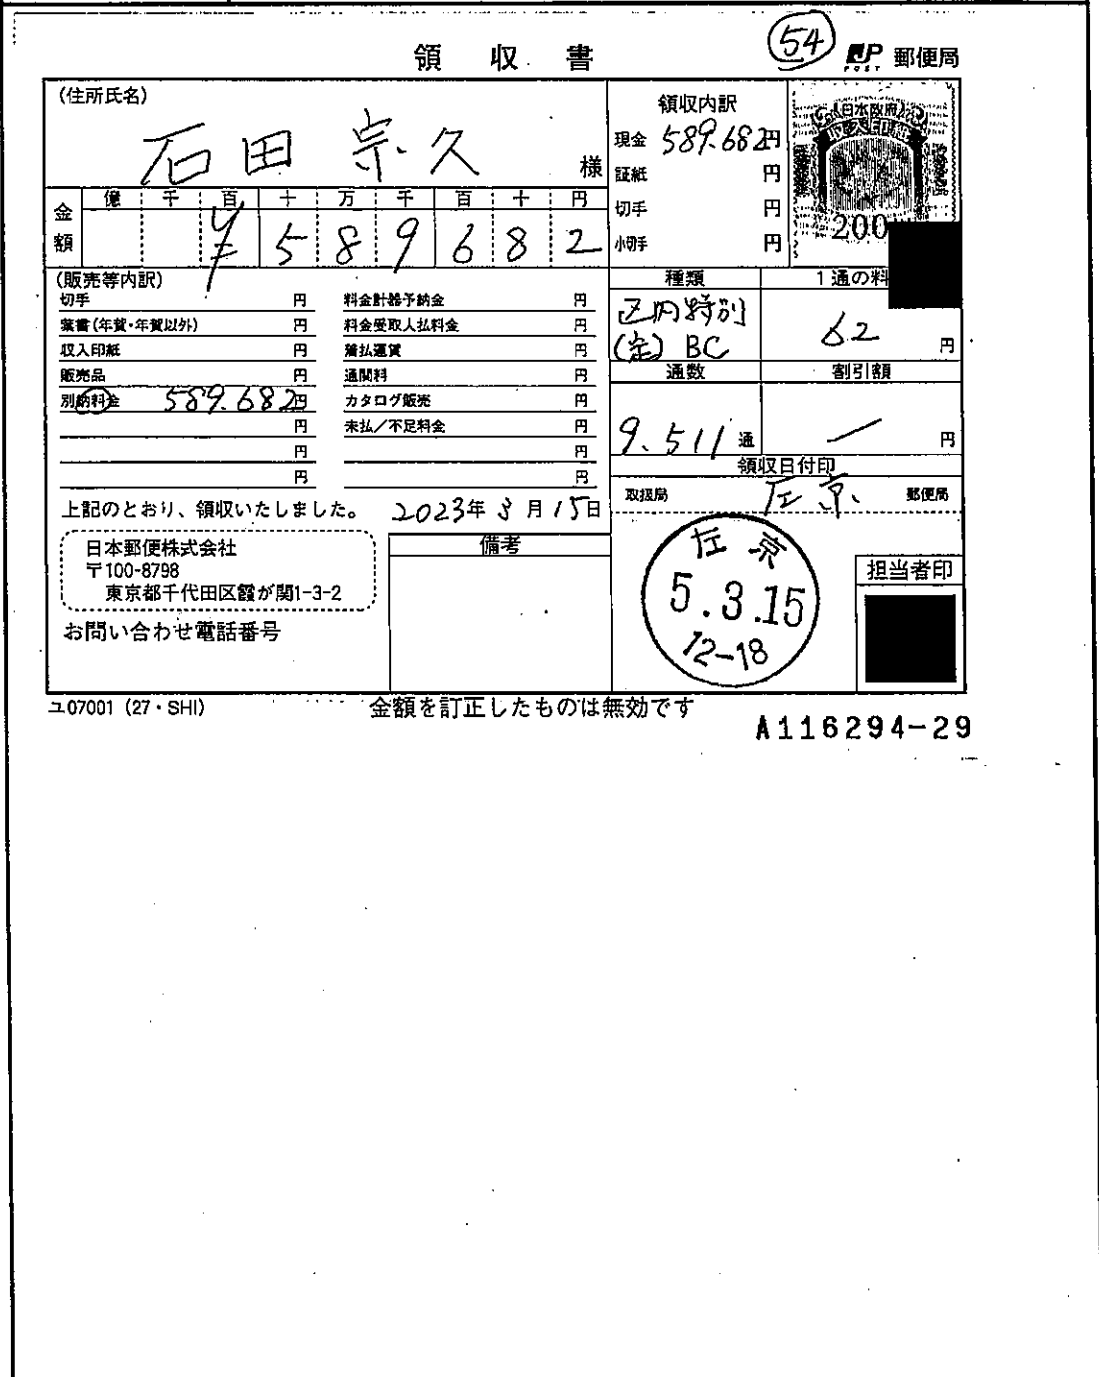 領 収 書
54
JP POST 郵便局
(住所氏名)
石田 宗久 様
金額
億 千 百 十 万 千 百 十 円
¥ 5 8 9 6 8 2
領収内訳
現金 589.682円
証紙 円
切手 円
小切手 円
日本政府
収入印紙
200
(販売等内訳)
切手 円
葉書(年賀・年賀以外) 円
収入印紙 円
販売品 円
別納料金 589.682円
円
円
円
料金計器予納金 円
料金受取人払料金 円
着払運賃 円
通関料 円
カタログ販売 円
未払/不足料金 円
円
円
種類
区内特別
(定) BC
1通の料
62 円
通数
9.511 通
割引額
― 円
領収日付印
取扱局 左京 郵便局
上記のとおり、領収いたしました。 2023年 3月 15日
日本郵便株式会社
〒100-8798
東京都千代田区霞が関1-3-2
お問い合わせ電話番号
備考
左京
5.3.15
12-18
担当者印
ユ07001 (27・SHI)
金額を訂正したものは無効です
A116294-29